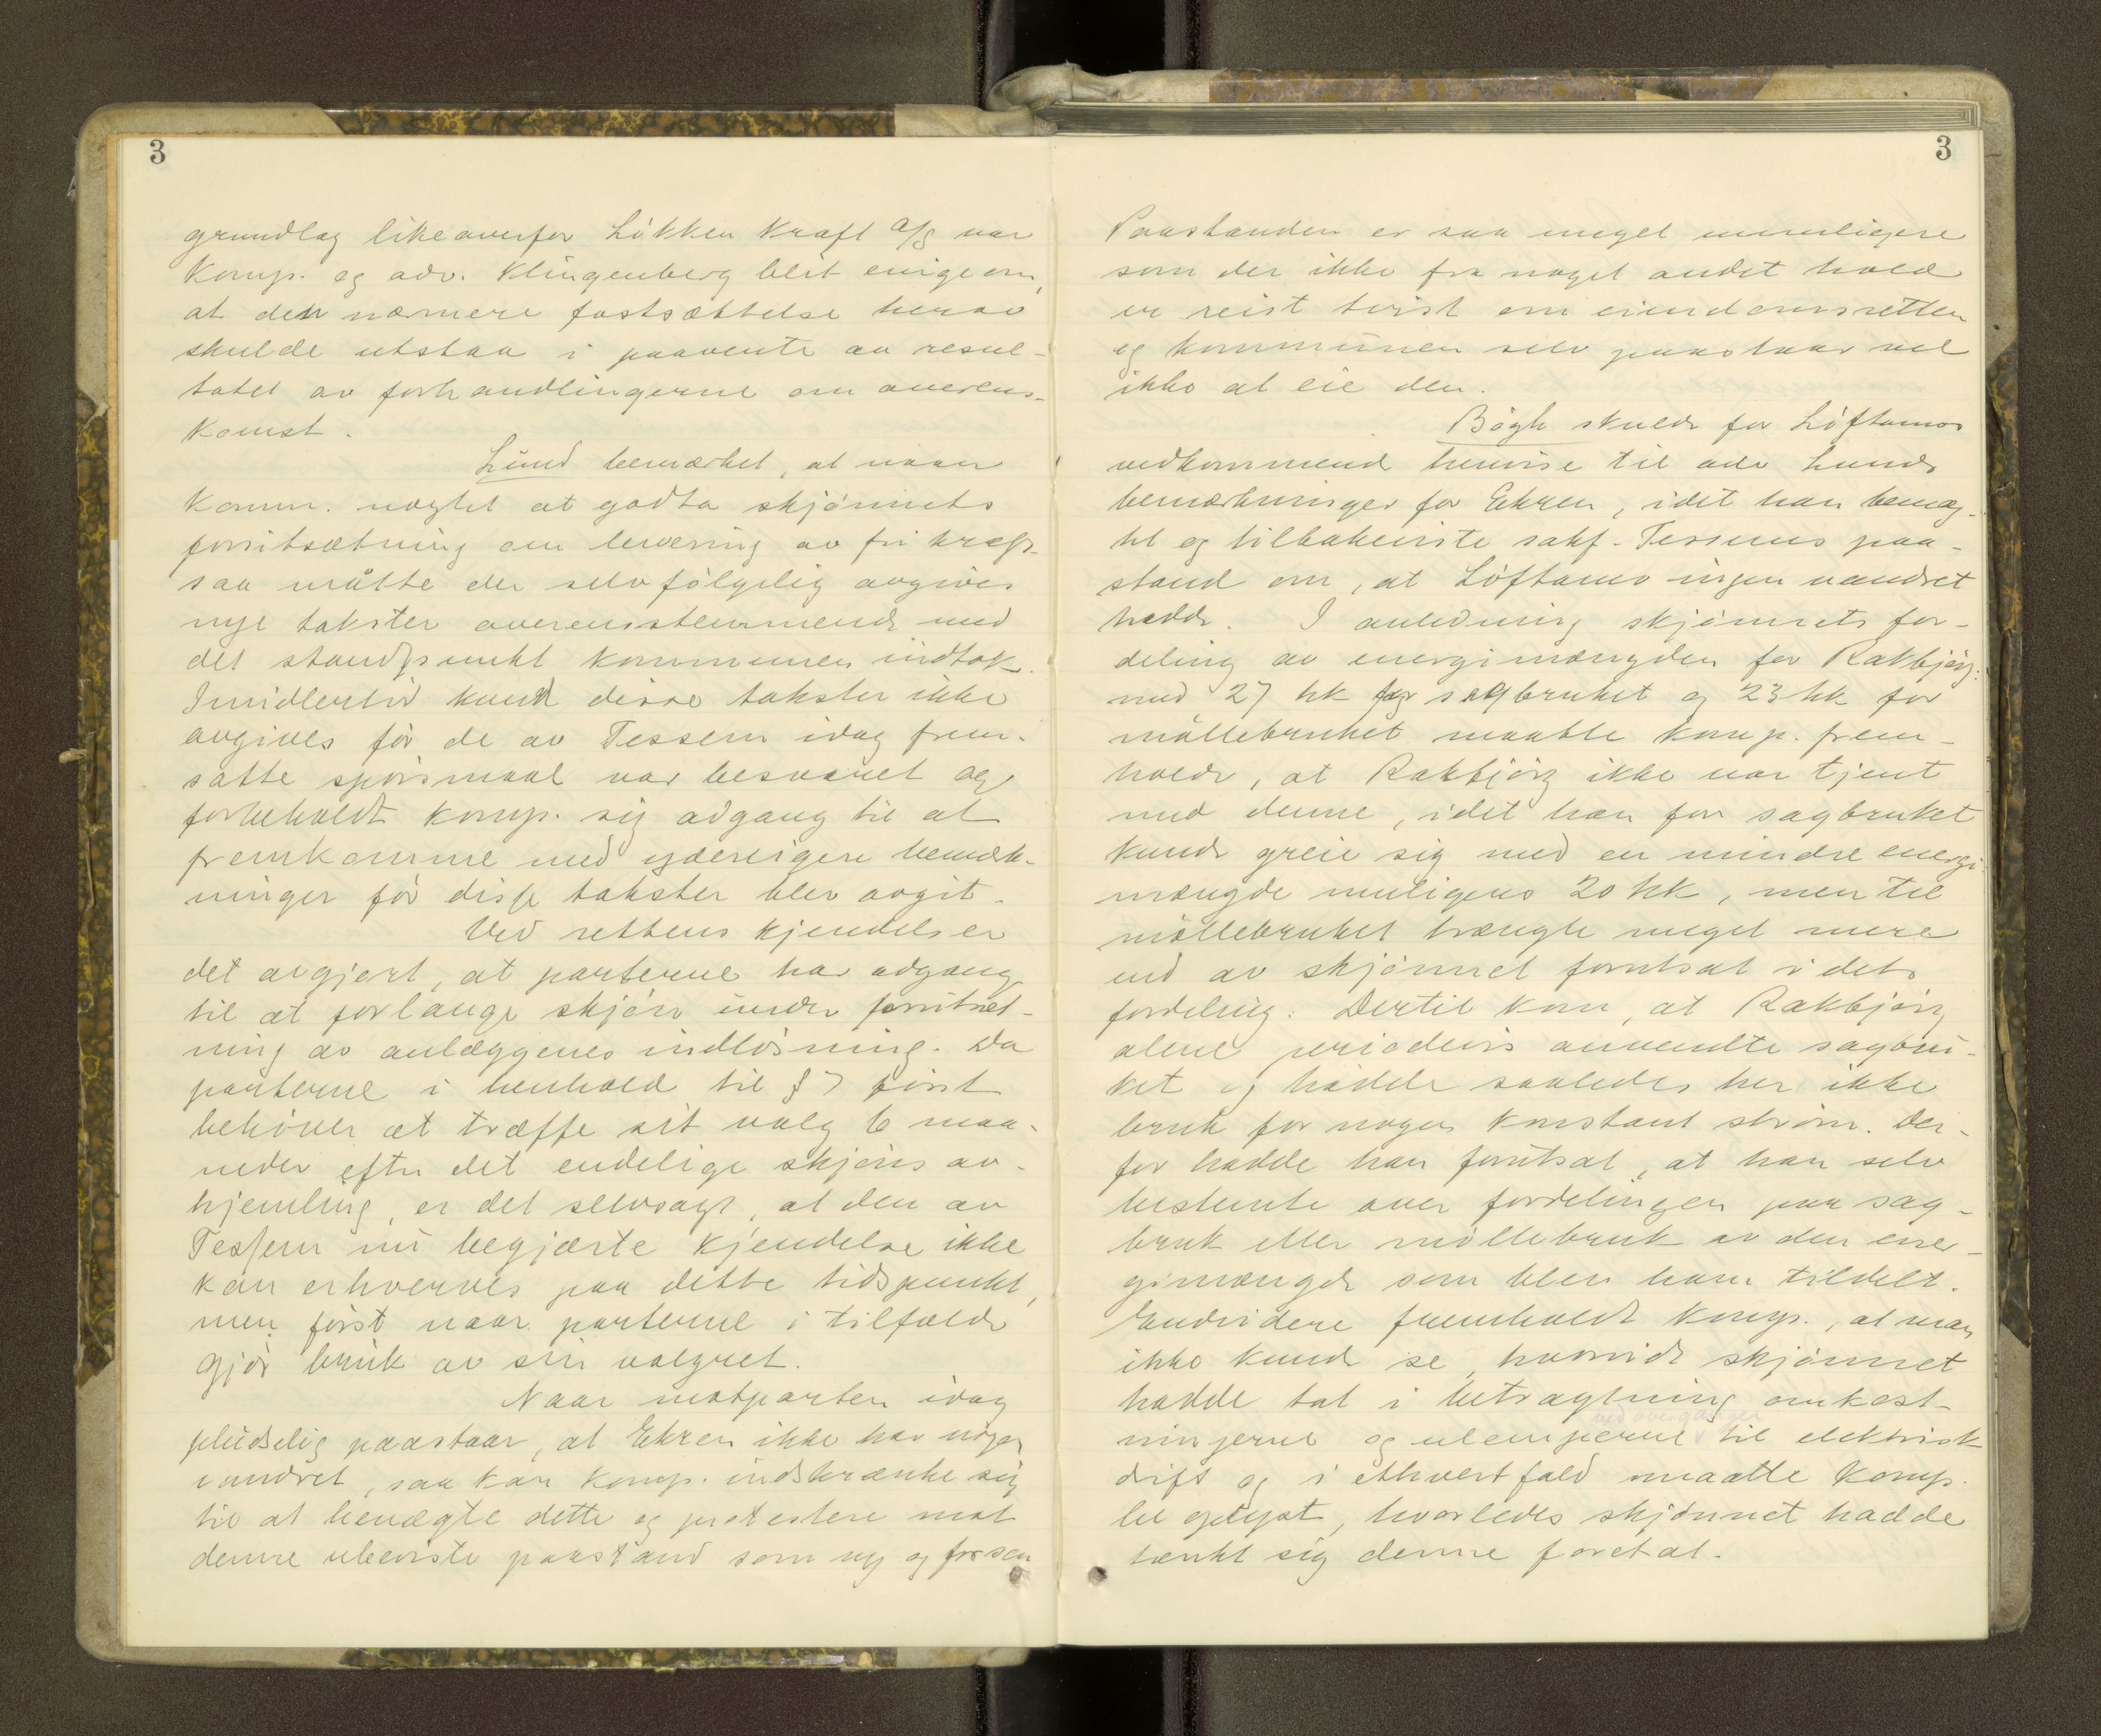 3
grundlag likeoverfor Løkken Kraft A/S var
Komp. og adv. Klingenberg blit enige om,
at den nærmere fastsættelse herav
skulde utstaa i paavente av resul-
tatet av forhandlingerne om overens-
komst.
Lund bemærket, at naar
Komm. nægtet at godta skjønnets
forutsætning om levering av fri kraft
saa måtte der selvfølgelig avgives
nye takster overensstemmende med
det standpunkt kommunen indtok.
Imidlertid kunde disse takster ikke
avgives før de av Tessem idag frem-
satte spørsmaal var besvaret og
forbeholdt komp. sig adgang til at
fremkomme med yderligere bemærk-
ninger før disse takster blev avgit.
Ved rettens kjendelse er
det avgjort, at parterne har adgang
til at forlange skjøn under forutsæt-
ning av anlæggenes indløsning. Da
parterne i henhold til § 7 først
behøver at træffe sit valg 6 maa-
neder efter det endelige skjøns av-
hjemling, er det selvsagt, at den av
Tessem nu begjærte kjendelse ikke
kan erhverves paa dette tidspunkt,
men først naar parterne i tilfælde
gjør bruk av sin valgret.
Naar motparten idag
pludselig paastaar, at Ekren ikke har nogen
vandret, saa kan komp. indskrænke sig
til at benægte dette og protestere mot
denne ubeviste paastand som ny og for sen
3
Paastanden er saa meget urimeligere
som der ikke fra noget andet hold
er reist tvist om eiendomsretten
og kommunen selv paastaar vel
ikke at eie den.
Bøgh skulde for Løftamo
vedkommende henvise til adv Lunds
bemærkninger for Ekren, idet han benæg-
tet og tilbakeviste sakf. Tessems paa-
stand om, at Løftamo ingen vandret
hadde. I anledning skjønnets for-
deling av energimængden for Rakbjørg:
med 27 hk for sagbruket og 23 hk for
møllebruket maatte komp. frem-
holde, at Rakbjørg ikke var tjent
med denne, idet han for sagbruket
kunde greie sig med en mindre energi-
mængde muligens 20 hk, men til
møllebruket trængte meget mere
end av skjønnet forutsat i dets
fordeling. Dertil kom, at Rakbjørg
alene periodevis anvendte sagbru-
ket og hadde saaledes her ikke
bruk for nogen konstant strøm. Der-
for hadde han forutsat, at han selv
bestemte over fordelingen paa sag-
bruk eller møllebruk av den ener-
gimængde som blev ham tildelt.
Endvidere fremholdt komp., at man
ikke kunde se, hvorvidt skjønnet
hadde tat i betragtning omkost-
ved overgangen
ningerne og ulemperne til elektrisk
drift og i ethvert fald maatte Komp.
be oplyst, hvorledes skjønnet hadde
tænkt sig denne foretat.